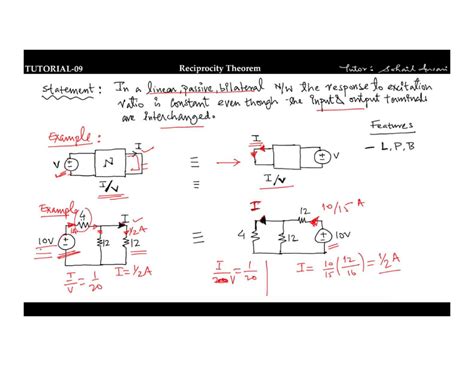 TUTORIAL-09 Reciprocity Theorem Tutor : Sohail Ansari
Statement : In a linear, passive, bilateral N/W the response to excitation
ratio is constant even though the input & output terminals
are interchanged.
Features
- L, P, B
Example :
V N I ≡ → I V
I/V I/V
Example
4 I 10V 12 12 1/2 A
≡
I 4 12 12 10/15 A 10V
I/V = 1/20 I = 1/2 A
I/V = 1/20 I = 10/15 (12/16) = 1/2 A